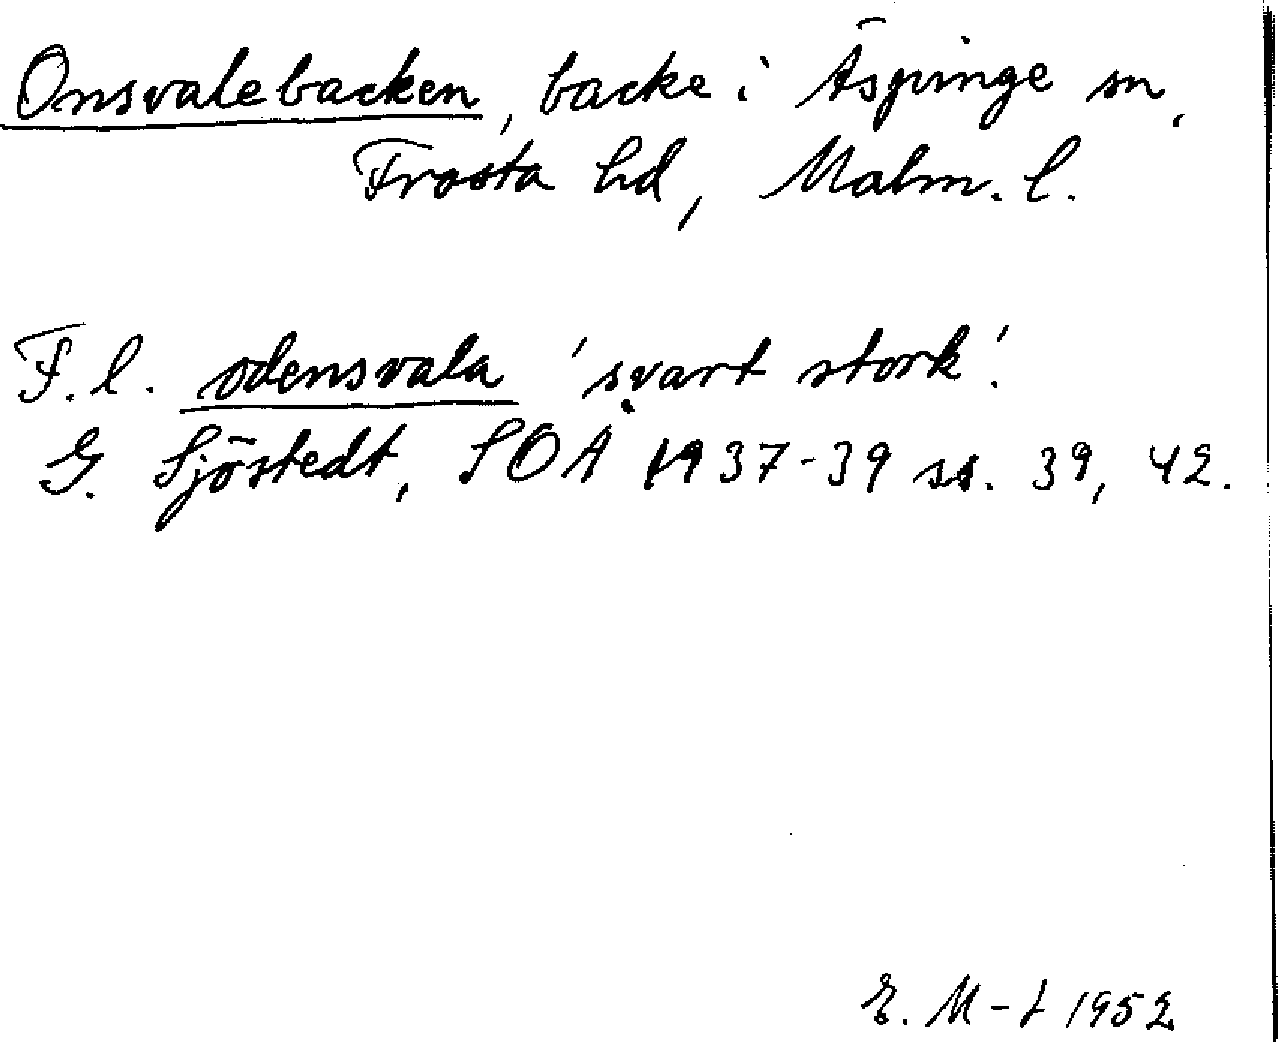 Onsvalebacken, backe i Äspinge sn,
Frosta hd, Malm. l.
F. l. odensvala 'svart stork'.
G. Sjöstedt, SOÅ 1937-39 ss. 39, 42.
E. M-t 1952